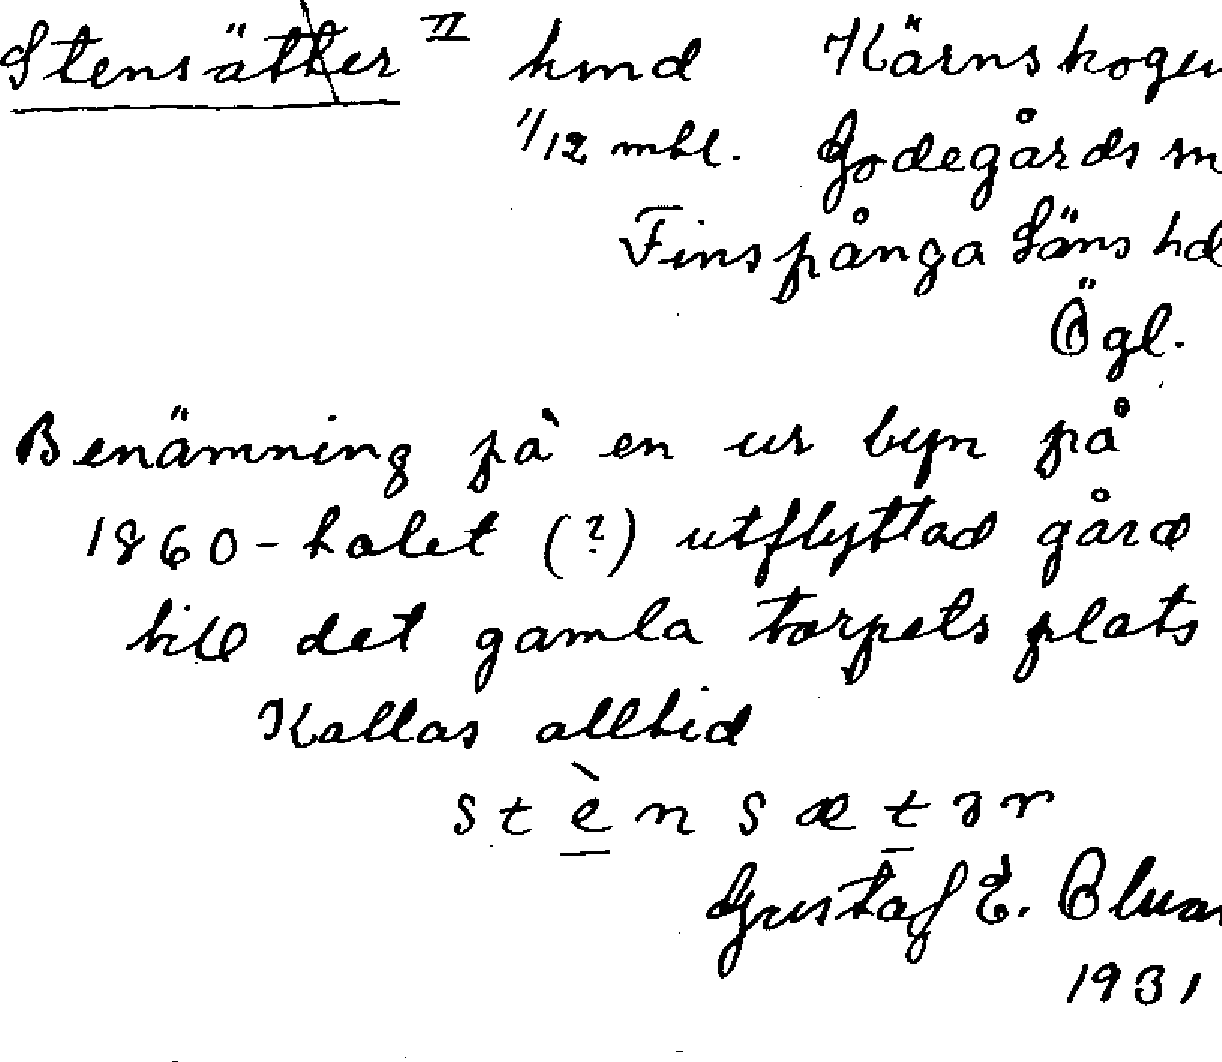 Stensätter II hmd Kärnskogen
1/12 mtl. Godegårds
Finspånga läns hd
Ögl.
Benämning på en ur byn på
1860-talet (?) utflyttad gård
till det gamla torpets plats
Kallas alltid
stènsætər
Gustaf E.
1931